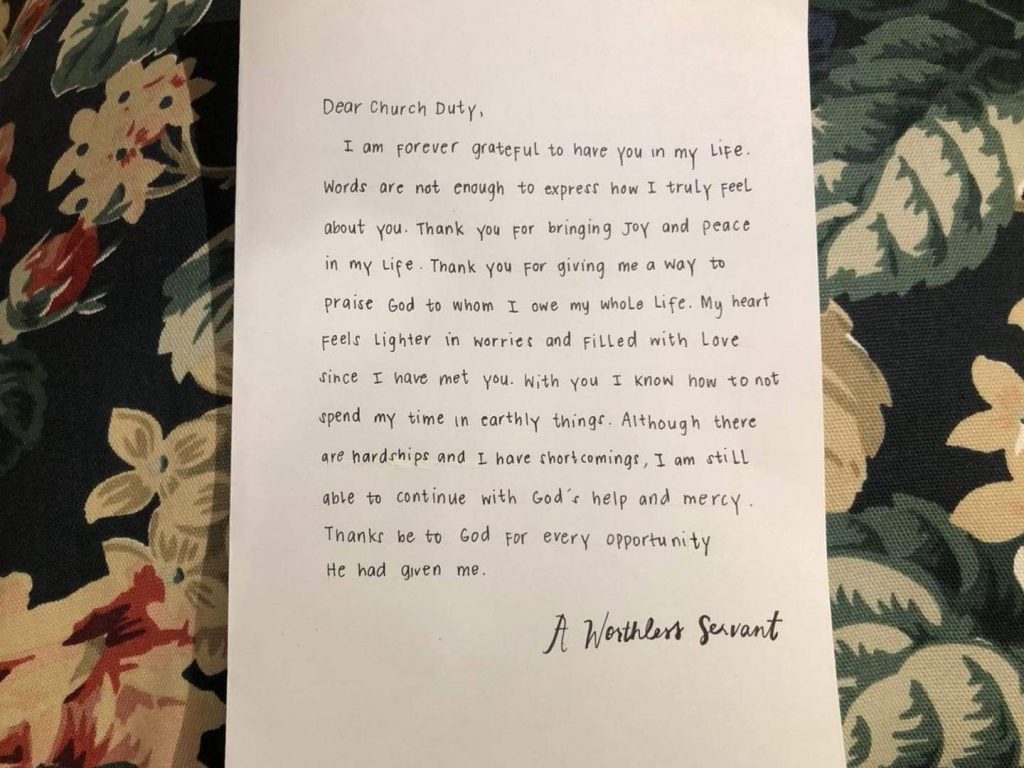 Dear Church Duty,
I am forever grateful to have you in my life.
Words are not enough to express how I truly feel
about you. Thank you for bringing Joy and peace
in my life. Thank you for giving me a way to
praise God to whom I owe my whole life. My heart
feels lighter in worries and filled with love
since I have met you. With you I know how to not
spend my time in earthly things. Although there
are hardships and I have shortcomings, I am still
able to continue with God's help and mercy.
Thanks be to God for every opportunity
He had given me.
A Worthless Servant